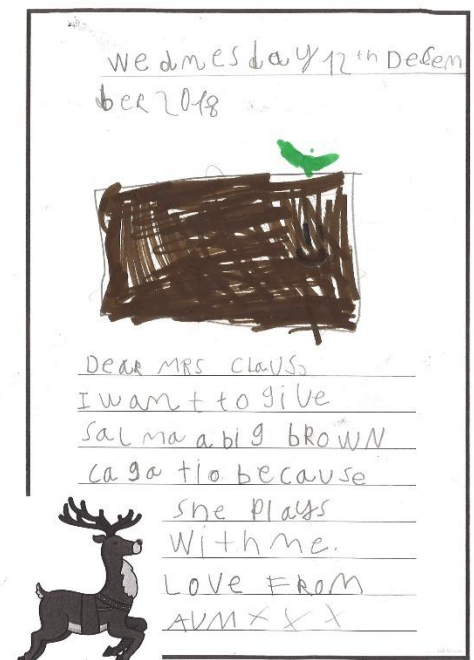 Wednesday 12th Decem
ber 2018
Dear MRS Claus,
I want to give
Salma a big bROWN
caga tio because
she plays
With me.
LOVE FROM
AUM x x x